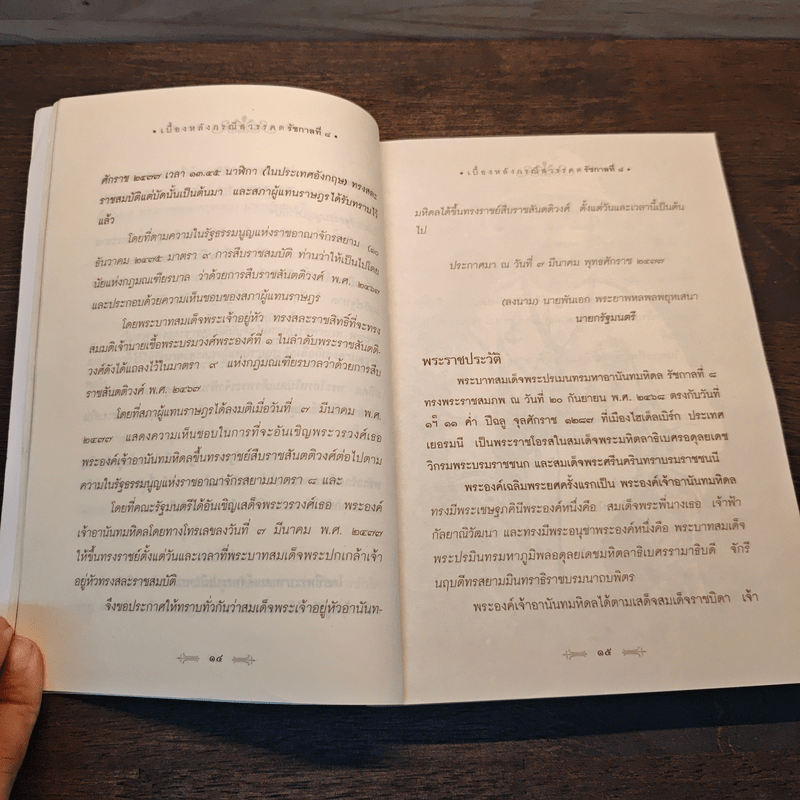 • เบื้องหลังกรณีสวรรคตรัชกาลที่ ๘ •
ศักราช ๒๔๗๗ เวลา ๑๓.๔๕ นาฬิกา (ในประเทศอังกฤษ) ทรงสละ
ราชสมบัติแต่บัดนั้นเป็นต้นมา และสภาผู้แทนราษฎรได้รับทราบไว้
แล้ว
โดยที่ตามความในรัฐธรรมนูญแห่งราชอาณาจักรสยาม (๑๐
ธันวาคม ๒๔๗๕ มาตรา ๙ การสืบราชสมบัติ ท่านว่าให้เป็นไปโดย
นัยแห่งกฎมณเฑียรบาล ว่าด้วยการสืบราชสันตติวงศ์ พ.ศ. ๒๔๖๗
และประกอบด้วยความเห็นชอบของสภาผู้แทนราษฎร
โดยพระบาทสมเด็จพระเจ้าอยู่หัว ทรงสละราชสิทธิ์ที่จะทรง
สมมติเจ้านายเชื้อพระบรมวงศ์พระองค์ที่ ๑ ในลำดับพระราชสันตติ-
วงศ์ดังได้แถลงไว้ในมาตรา ๙ แห่งกฎมณเฑียรบาลว่าด้วยการสืบ
ราชสันตติวงศ์ พ.ศ. ๒๔๖๗
โดยที่สภาผู้แทนราษฎรได้ลงมติเมื่อวันที่ ๗ มีนาคม พ.ศ.
๒๔๗๗ แสดงความเห็นชอบในการที่จะอันเชิญพระวรวงศ์เธอ
พระองค์เจ้าอานันทมหิดลขึ้นทรงราชย์สืบราชสันตติวงศ์ต่อไปตาม
ความในรัฐธรรมนูญแห่งราชอาณาจักรสยามมาตรา ๘ และ
โดยที่คณะรัฐมนตรีได้อันเชิญเสด็จพระวรวงศ์เธอ พระองค์
เจ้าอานันทมหิดลโดยทางโทรเลขลงวันที่ ๗ มีนาคม พ.ศ. ๒๔๗๗
ให้ขึ้นทรงราชย์ตั้งแต่วันและเวลาที่พระบาทสมเด็จพระปกเกล้าเจ้า
อยู่หัวทรงสละราชสมบัติ
จึงขอประกาศให้ทราบทั่วกันว่าสมเด็จพระเจ้าอยู่หัวอานันท-
๑๔
• เบื้องหลังกรณีสวรรคตรัชกาลที่ ๘ •
มหิดลได้ขึ้นทรงราชย์สืบราชสันตติวงศ์ ตั้งแต่วันและเวลานี้เป็นต้น
ไป
ประกาศมา ณ วันที่ ๗ มีนาคม พุทธศักราช ๒๔๗๗
(ลงนาม) นายพันเอก พระยาพหลพลพยุหเสนา
นายกรัฐมนตรี
พระราชประวัติ
พระบาทสมเด็จพระปรเมนทรมหาอานันทมหิดล รัชกาลที่ ๘
ทรงพระราชสมภพ ณ วันที่ ๒๐ กันยายน พ.ศ. ๒๔๖๘ ตรงกับวันที่
๑๑ ค่ำ ปีฉลู จุลศักราช ๑๒๘๗ ที่เมืองไฮเด็ลเบิร์ก ประเทศ
เยอรมนี เป็นพระราชโอรสในสมเด็จพระมหิตลาธิเบศรอดุลยเดช
วิกรมพระบรมราชชนก และสมเด็จพระศรีนครินทราบรมราชชนนี
พระองค์เฉลิมพระยศครั้งแรกเป็น พระองค์เจ้าอานันทมหิดล
ทรงมีพระเชษฐภคินีพระองค์หนึ่งคือ สมเด็จพระพี่นางเธอ เจ้าฟ้า
กัลยาณิวัฒนา และทรงมีพระอนุชาพระองค์หนึ่งคือ พระบาทสมเด็จ
พระปรมินทรมหาภูมิพลอดุลยเดชมหิตลาธิเบศรรามาธิบดี จักรี
นฤบดีทรสยามมินทราธิราชบรมนาถบพิตร
พระองค์เจ้าอานันทมหิดลได้ตามเสด็จสมเด็จราชบิดา เจ้า
๑๕